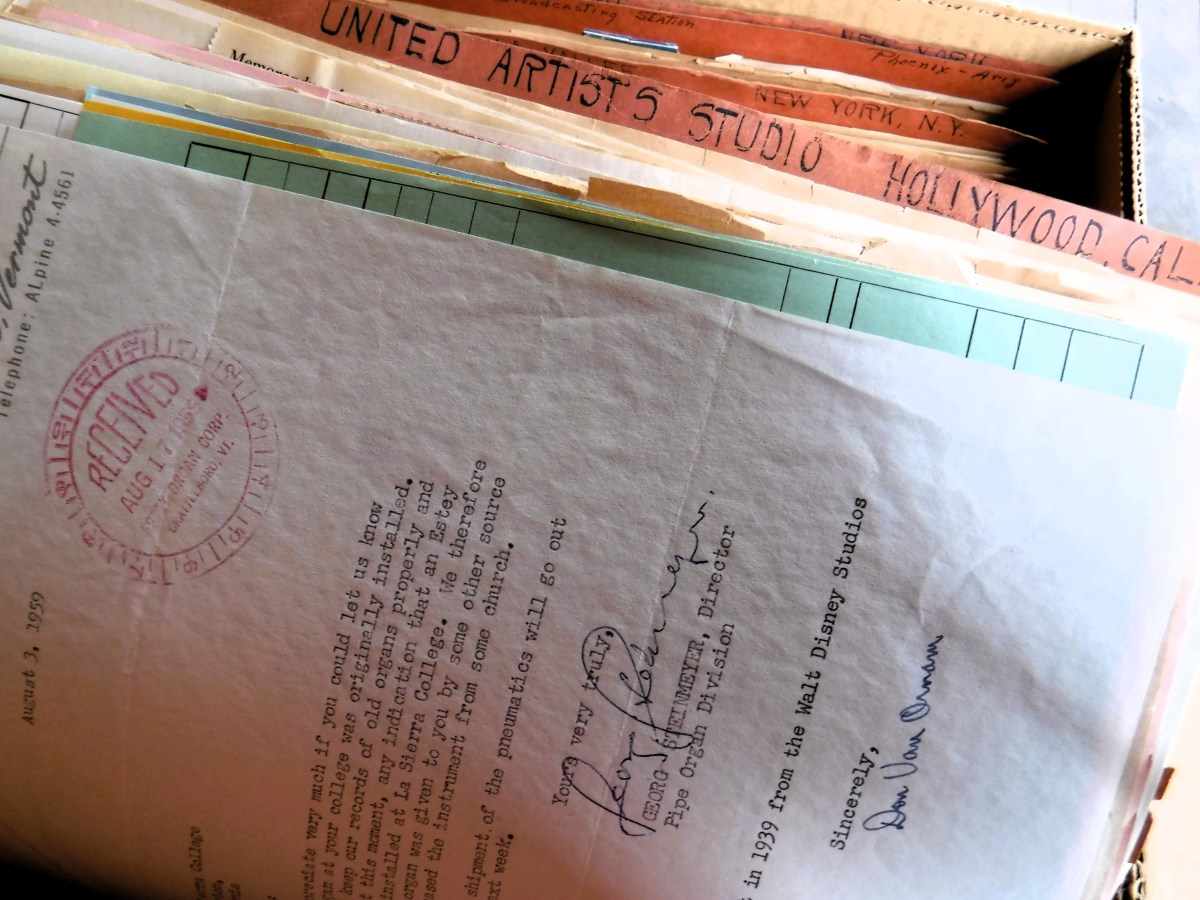 Broadcasting Station
NEW YORK
Phoenix - Ariz
NEW YORK, N.Y.
UNITED ARTISTS STUDIO HOLLYWOOD, CAL.
Vermont
Telephone: ALpine 4-4561
RECEIVED
AUG 17
ORGAN CORP.
BRATTLEBORO, VT.
August 3, 1959
College
very much if you could let us know
at your college was originally installed.
keep our records of old organs properly and
this moment, any indication that an Estey
installed at La Sierra College. We therefore
organ was given to you by some other source
the instrument from some church.
shipment of the pneumatics will go out
week.
Yours very truly,
GEORG STEINMEYER, Director
Pipe Organ Division
in 1939 from the Walt Disney Studios
Sincerely,
Don Van Ornam